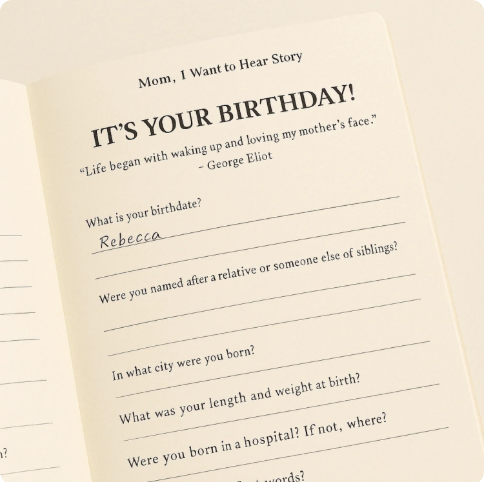 Mom, I Want to Hear Story
IT'S YOUR BIRTHDAY!
“Life began with waking up and loving my mother's face.”
– George Eliot
What is your birthdate?
Rebecca
Were you named after a relative or someone else of siblings?
In what city were you born?
What was your length and weight at birth?
Were you born in a hospital? If not, where?
words?
?